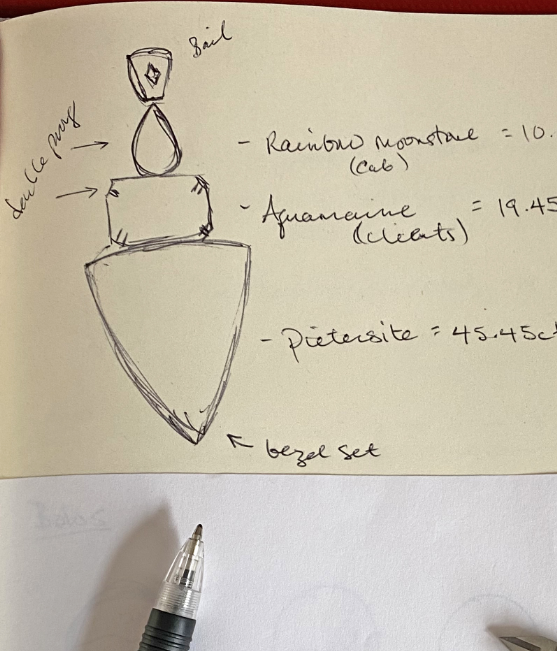 Bail
double prong
- Rainbow moonstone = 10.
(cab)
- Aquamarine = 19.45
(clients)
- Pietersite = 45.45ct
bezel set